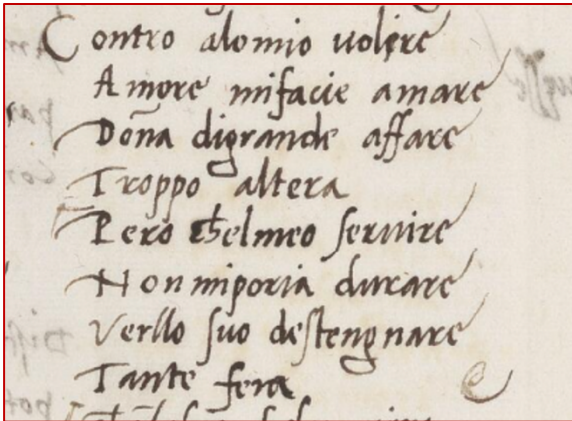 Contro alomio uolere
Amore mifacie amare
Doña digrande affare
Troppo altera
Pero chelmeo seruire
Non miporia durare
Verllo suo destengnare
Tante fera